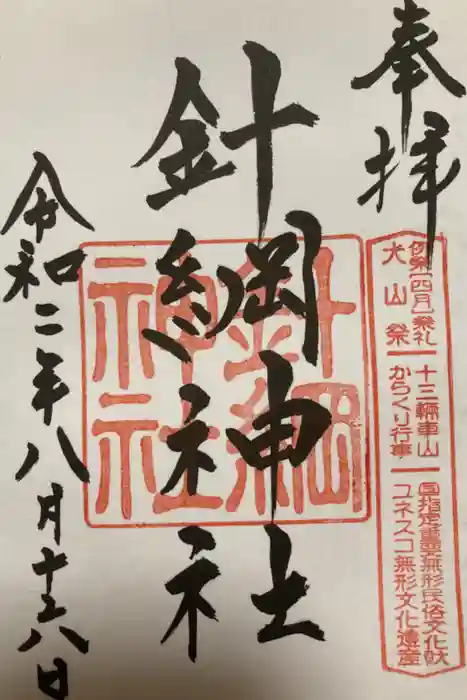 奉拝
例祭[四月]祭礼
犬山祭
十三輛車山
からくり行事
国指定重要無形民俗文化財
ユネスコ無形文化遺産
針綱神社
針綱神社
令和二年八月十六日